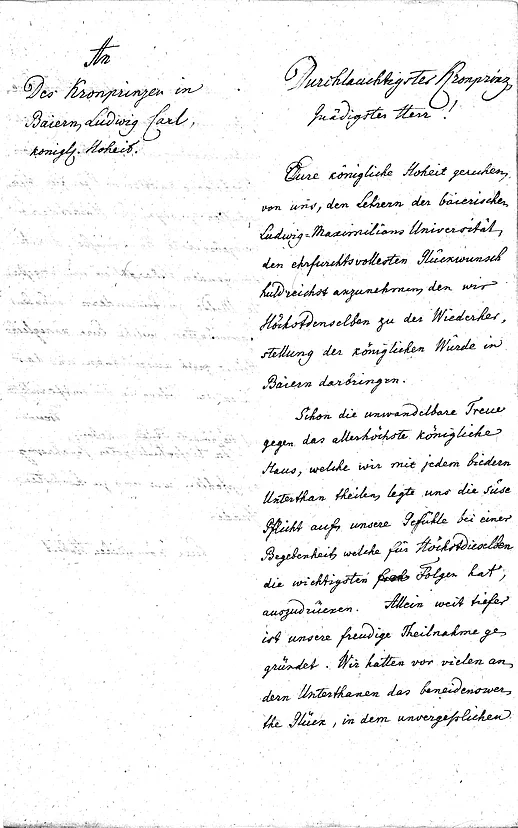 An
Des Kronprinzen in
Baiern, Ludwig Carl,
königl. Hoheit.
Durchlauchtigster Kronprinz,
Gnädigster Herr!
Eure königliche Hoheit geruhen,
von uns, den Lehrern der baierischen
Ludwig-Maximilians Universität,
den ehrfurchtsvollesten Glückwunsch
huldreichst anzunehmen, den wir
Höchstdenselben zu der Wiederher,
stellung der königlichen Würde in
Baiern darbringen.
Schon die unwandelbare Treue
gegen das allerhöchste königliche
Haus, welche wir mit jedem biedern
Unterthan theilen, legte uns die süse
Pflicht auf, unsere Gefühle bei einer
Begebenheit, welche für Höchstdieselben
die wichtigsten Folgen hat,
auszudrücken. Allein weit tiefer
ist unsere freudige Theilnahme ge,
gründet. Wir hatten vor vielen an,
dern Unterthanen das beneidenswer,
the Glück, in dem unvergeßlichen